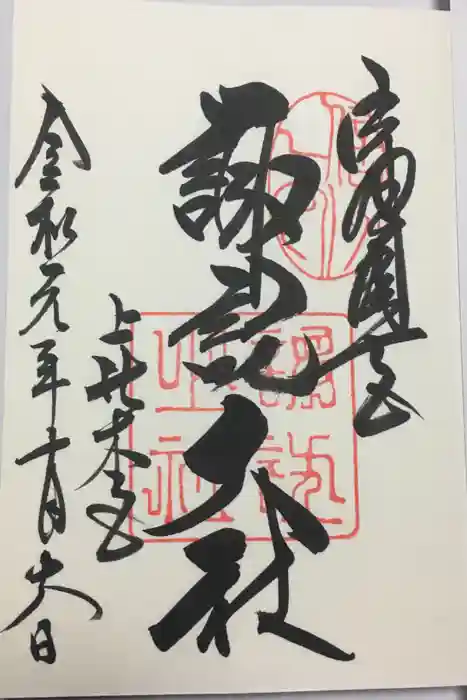 信濃國一之宮
諏訪大社
上社本宮
令和元年 月六日